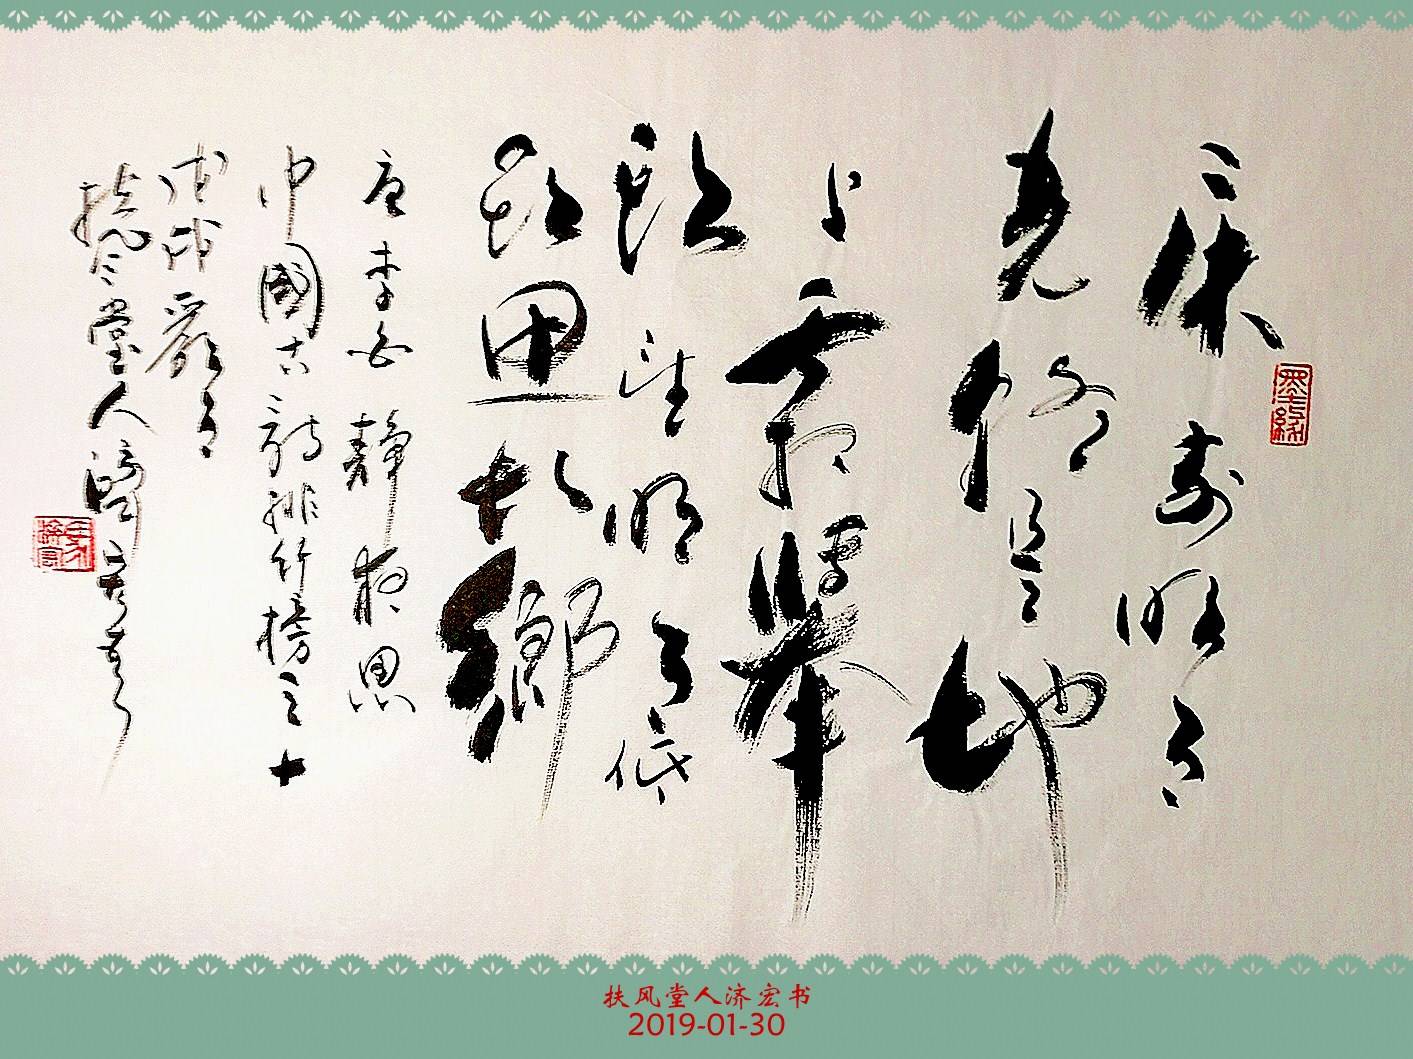 床前明月
光疑是地
上霜举
头望明月低
头思故鄉
唐李白靜夜思
中國古詩排行榜之十
戊戌嚴月
扶风堂人濟宏書
墨缘
扶风堂人济宏书
2019-01-30